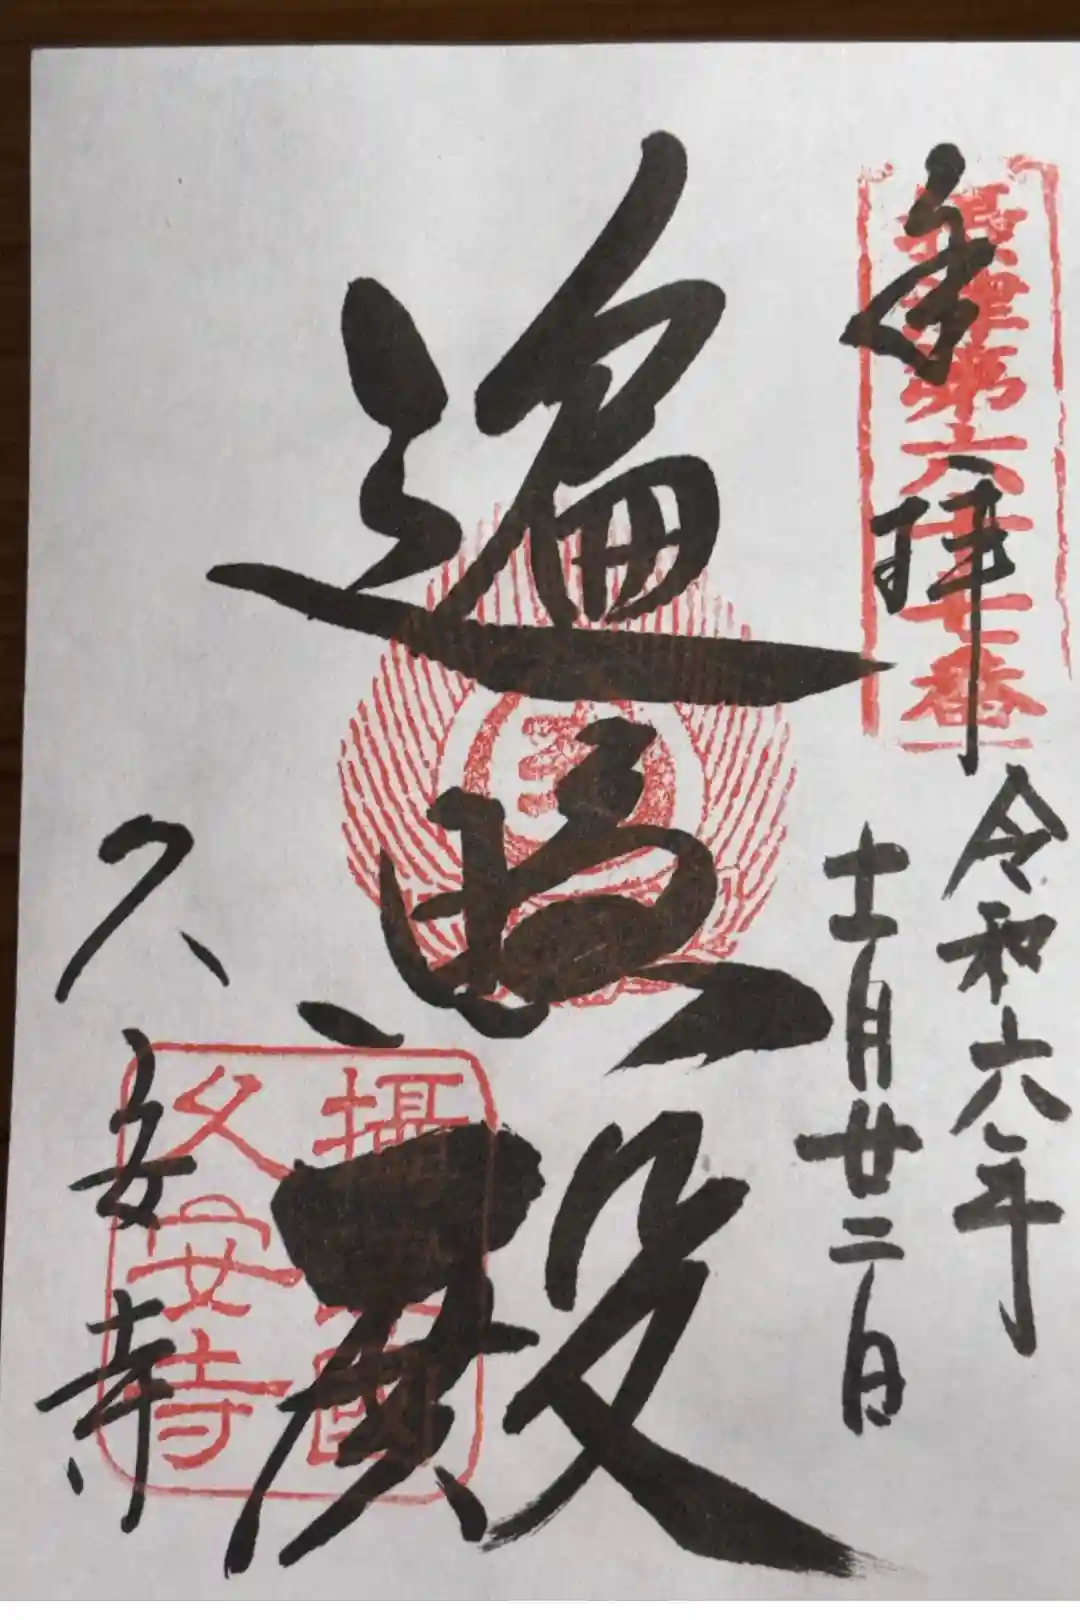 奉拝
攝津第六十七番
令和六年
十一月廿二日
遍照殿
久安寺
久安寺